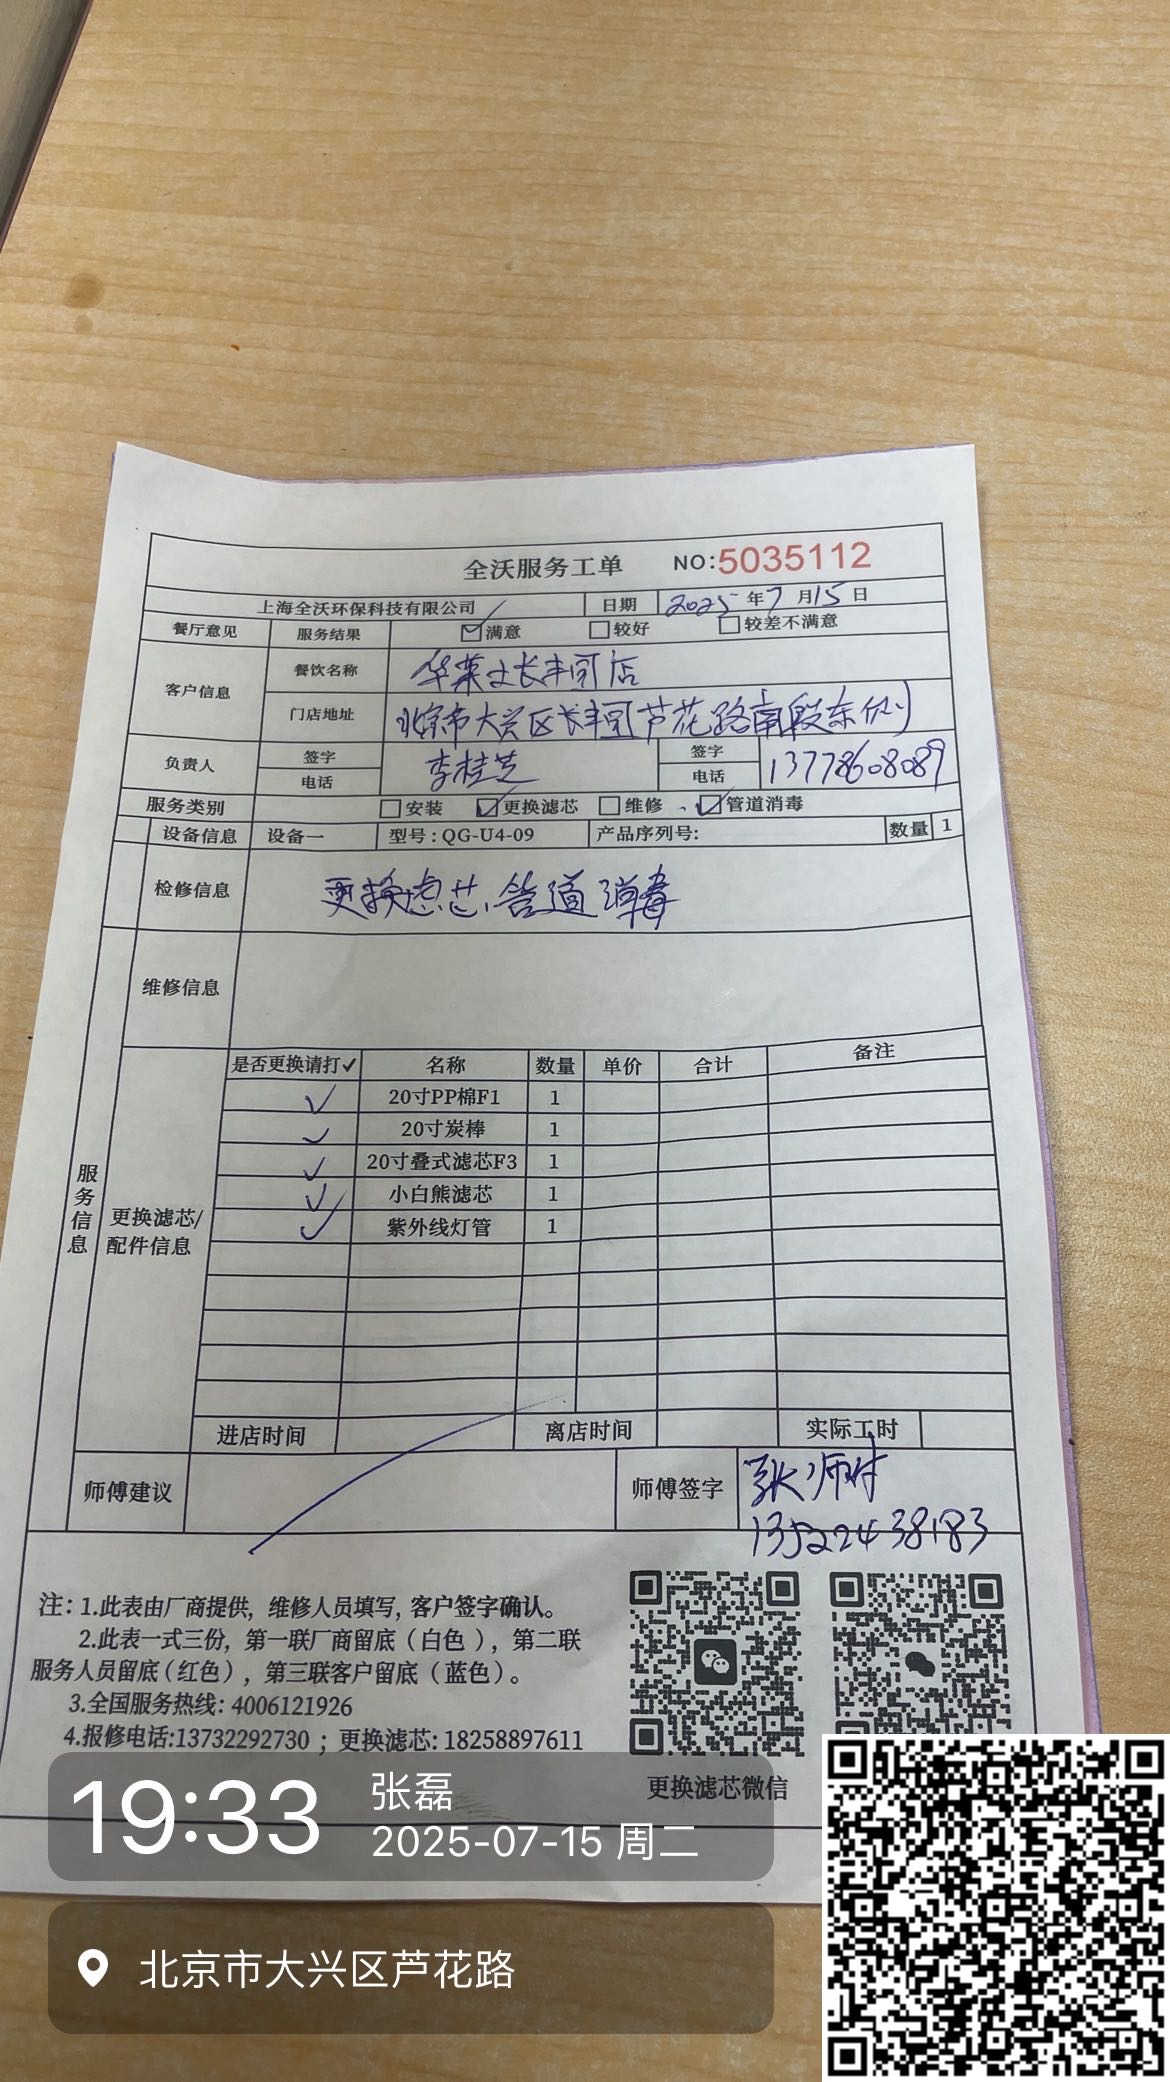 全沃服务工单 NO:5035112
上海全沃环保科技有限公司 日期 2025年7月15日
餐厅意见 服务结果 ☑满意 □较好 □较差不满意
客户信息 餐饮名称 华莱士长丰园店
门店地址 北京市大兴区长丰园芦花路南段东侧
负责人 签字 李桂芝 签字
电话 电话 13778608089
服务类别 □安装 ☑更换滤芯 □维修 ☑管道消毒
设备信息 设备一 型号:QG-U4-09 产品序列号: 数量 1
检修信息 更换滤芯、管道消毒
维修信息
服务信息
更换滤芯/配件信息
是否更换请打✓ 名称 数量 单价 合计 备注
✓ 20寸PP棉F1 1
✓ 20寸炭棒 1
✓ 20寸叠式滤芯F3 1
✓ 小白熊滤芯 1
✓ 紫外线灯管 1
进店时间 离店时间 实际工时
师傅建议 师傅签字 张师付
13522438183
注: 1.此表由厂商提供, 维修人员填写, 客户签字确认。
2.此表一式三份, 第一联厂商留底（白色）, 第二联
服务人员留底（红色）, 第三联客户留底（蓝色）。
3.全国服务热线: 4006121926
4.报修电话:13732292730 ; 更换滤芯: 18258897611
更换滤芯微信
19:33 张磊
2025-07-15 周二
北京市大兴区芦花路